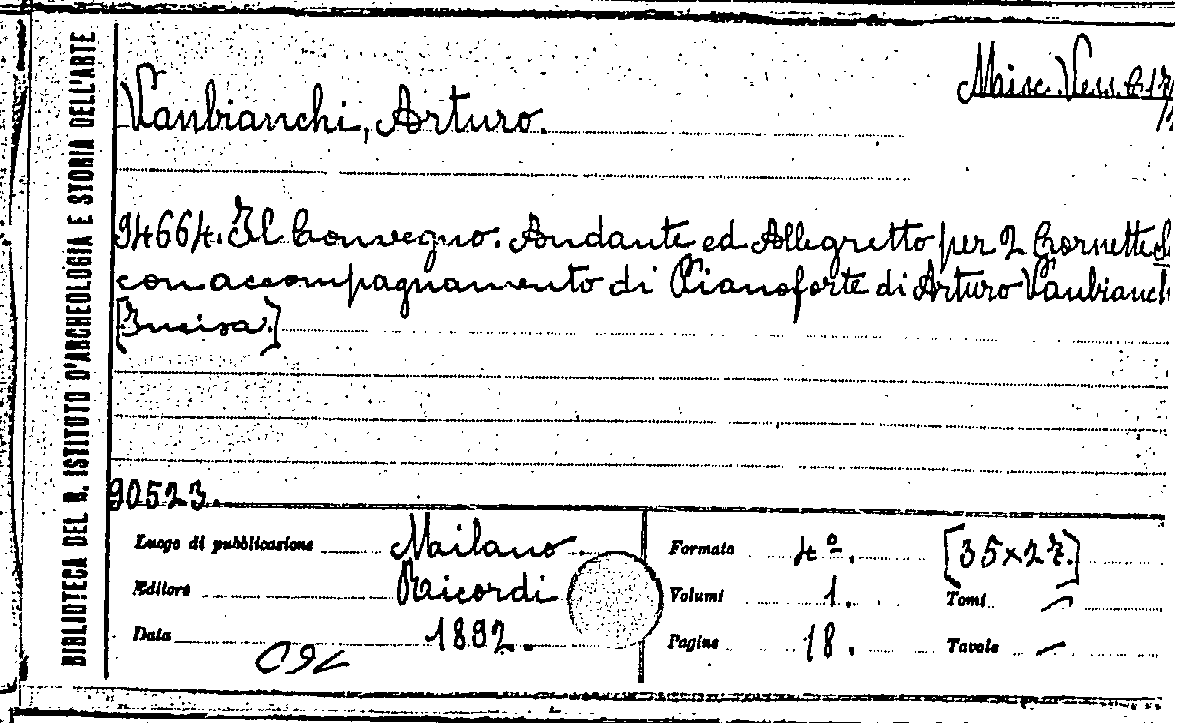 BIBLIOTECA DEL R. ISTITUTO D'ARCHEOLOGIA E STORIA DELL'ARTE
Misc. Vess. B 17
Vanbianchi, Arturo.
94664. Il Convegno. Andante ed Allegretto per 2 Cornette
con accompagnamento di Pianoforte di Arturo Vanbianch
[Incisa.]
90523.
Luogo di pubblicazione Milano. Formato 4º. [35×27.]
Editore Ricordi Volumi 1. Tomi —
Data 1892. Pagine 18. Tavole —